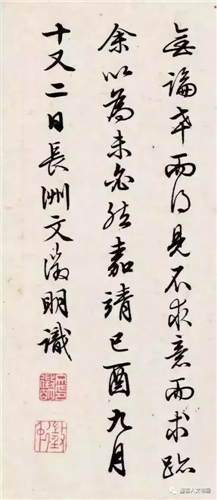 無論而見不求意而求跡
余以為未必然嘉靖己酉九月
十又二日長洲文徵明識